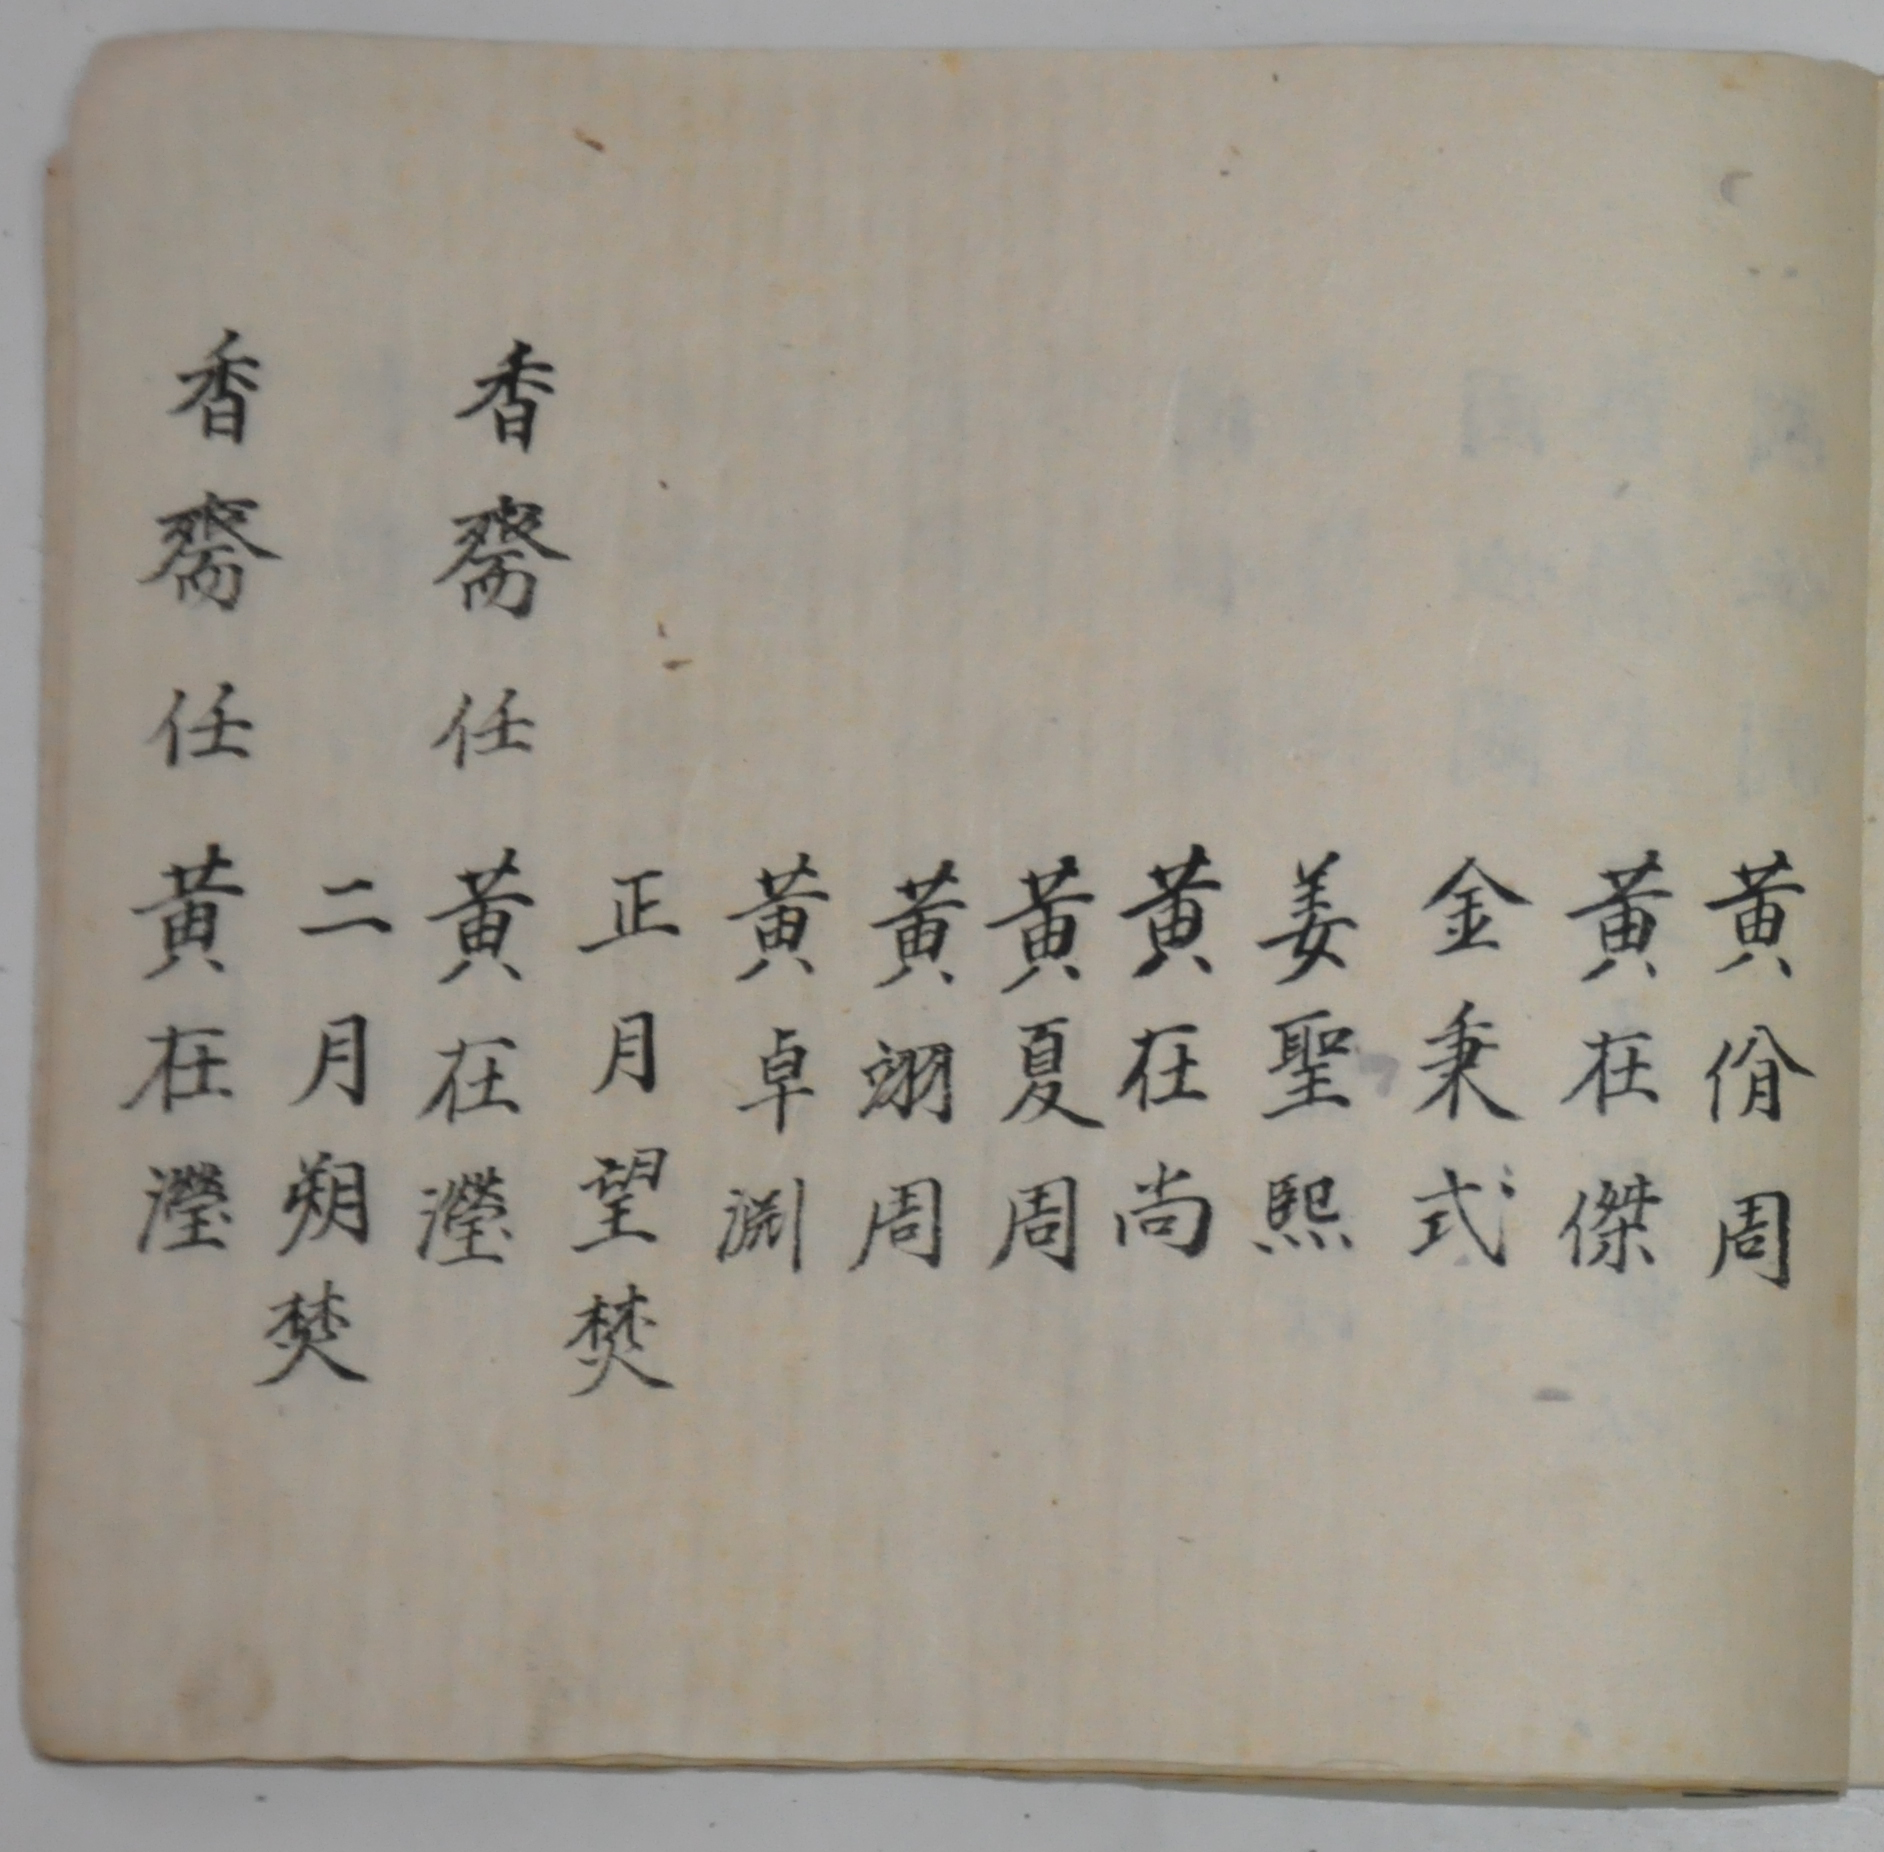 黃佾周
黃在傑
金秉式
姜聖熙
黃在尚
黃夏周
黃翊周
黃卓淵
正月望焚
香齋任 黃在瀅
二月朔焚
香齋任 黃在瀅